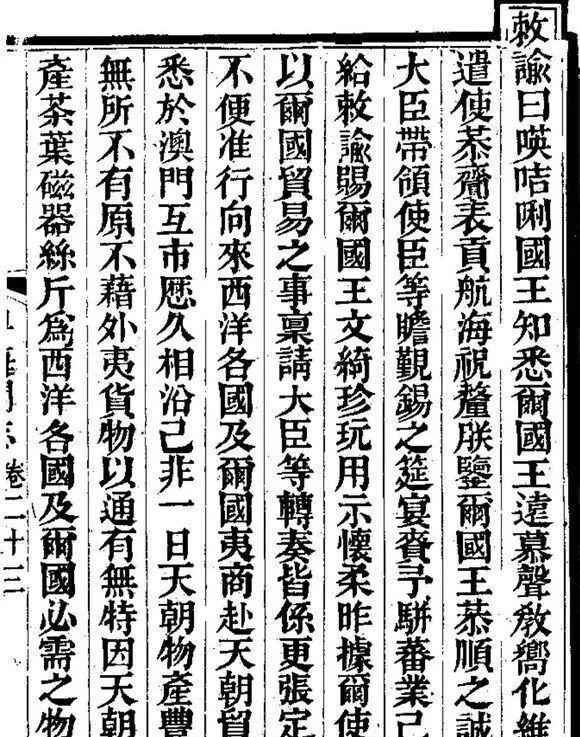 敕諭曰暎咭唎國王知悉爾國王遠慕聲敎嚮化維
遣使恭齎表貢航海祝釐朕鑒爾國王恭順之誠
大臣帶領使臣等瞻覲錫之筵宴賚予駢蕃業已
給敕諭賜爾國王文綺珍玩用示懷柔昨據爾使
以爾國貿易之事稟請大臣等轉奏皆係更張定
不便准行向來西洋各國及爾國夷商赴天朝貿
悉於澳門互市歷久相沿已非一日天朝物產豐
無所不有原不藉外夷貨物以通有無特因天朝
產茶葉磁器絲斤爲西洋各國及爾國必需之物
卷二十三